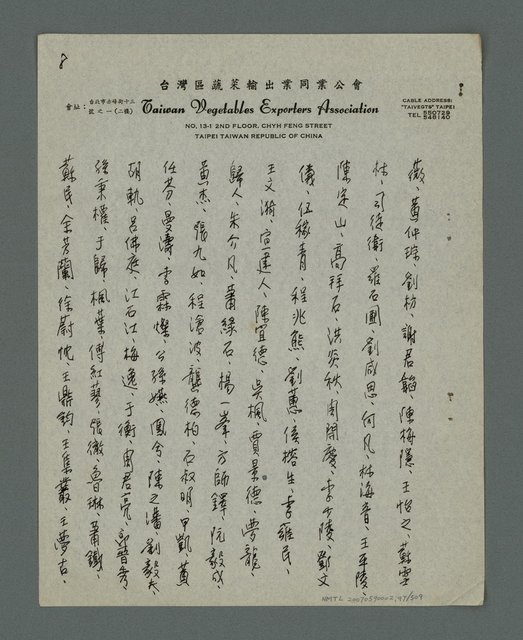 8
台灣區蔬菜輸出業同業公會
會址：台北市赤峰街十三號之一(二樓)
Taiwan Vegetables Exporters Association
CABLE ADDRESS:
"TAIVEGTS" TAIPEI
TEL 550729
548140
NO. 13-1 2ND FLOOR, CHYH FENG STREET
TAIPEI TAIWAN REPUBLIC OF CHINA
薇、黃仲琮、劉枋、謝君韜、陳梅隱、王怡之、蘇雪
林、司徒衛、羅石圃、劉咸思、何凡、林海音、王平陵、
陳定山、高拜石、洪炎秋、周開慶、李少陵、鄧文
儀、伍稼青、程兆熊、劉蕙、侯榕生、李雍民、
王文漪、宣建人、陳宜德、吳楓、賈景德、夢龍、
歸人、朱介凡、蕭綠石、楊一峯、方師鐸、阮毅成、
黃杰、張九如、程滄波、龔德柏、石叔明、甲凱、黃
任芬、晏濤、李霖燦、公孫嬿、鳳兮、陳之藩、劉毅夫、
胡軌、呂佛庭、江石江、梅逸、于衡、周君亮、郭晉秀、
徐秉權、于歸、楓葉、傅紅蓼、張徹、魯琳、蕭鐵、
蘇民、余芳蘭、徐蔚忱、王鼎鈞、王集叢、王夢古、
NMTL 20070590002, 97/509